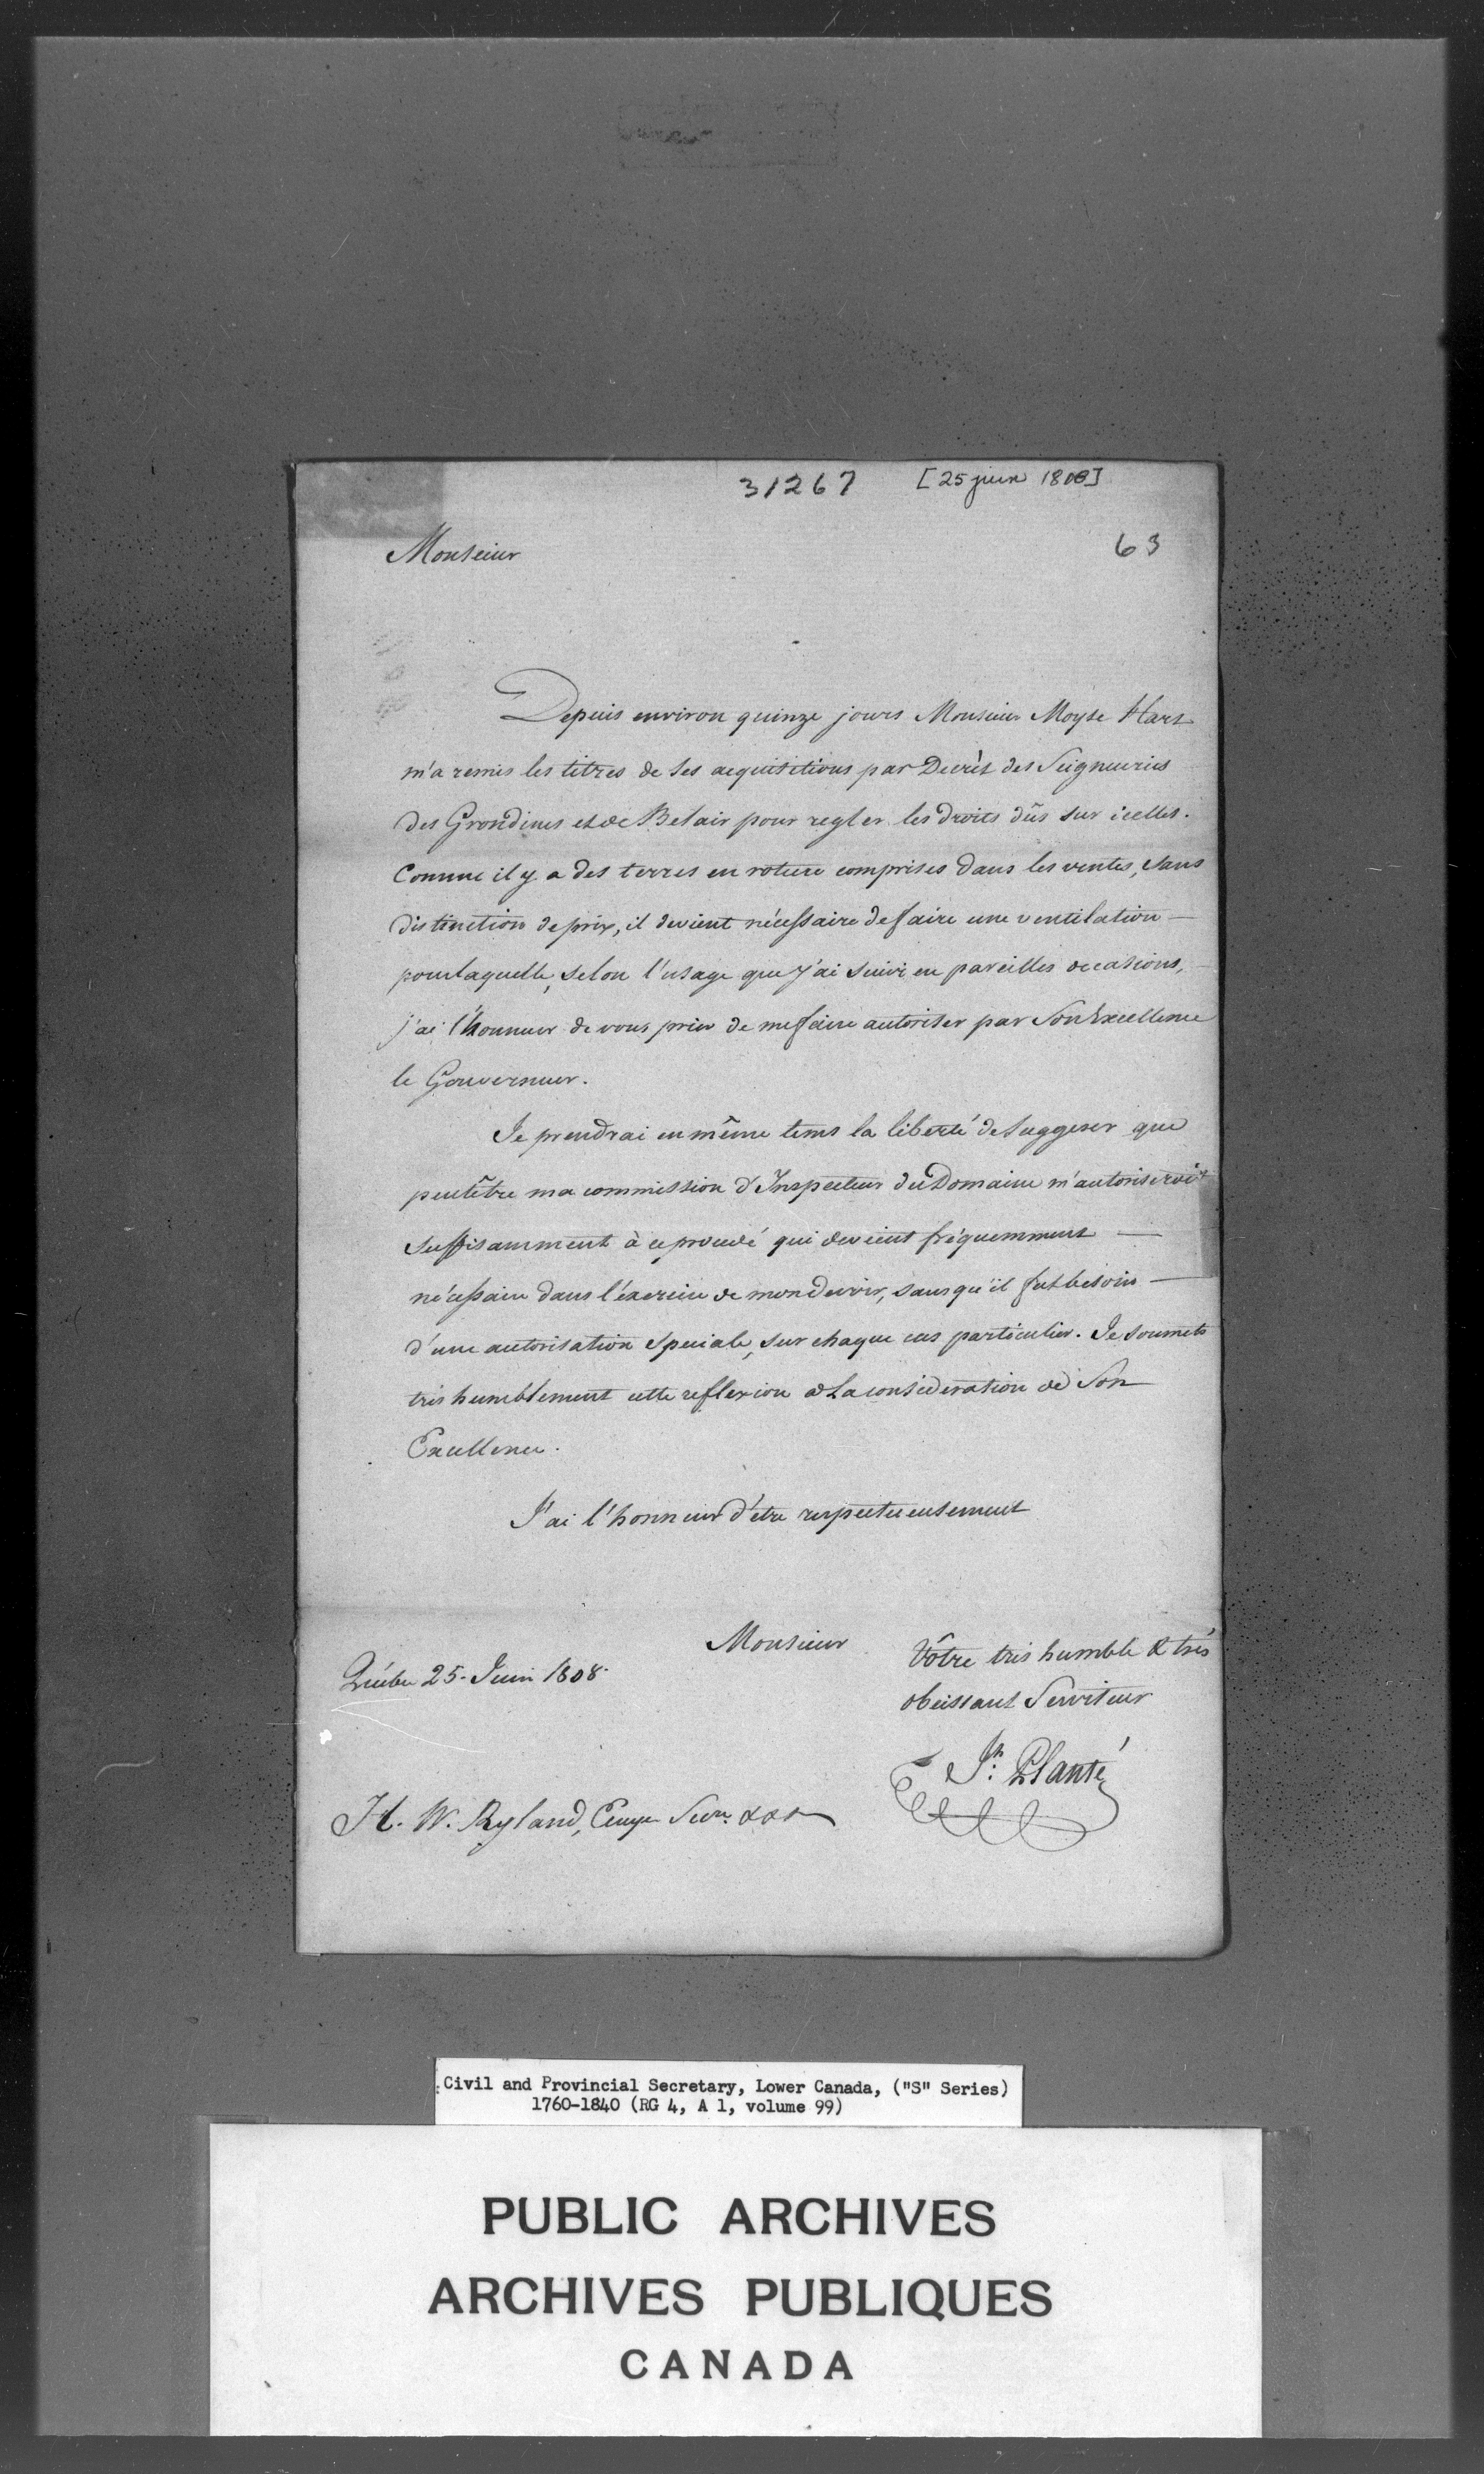 31267 [25 juin 1808]
63
Monsieur
Depuis environ quinze jours Monsieur Moyse Hart
m'a remis les titres de ses acquisitions par Decrèt des Seigneuries
des Grondines et de Belair pour regler les droits dûs sur icelles.
Comme il y a des terres en roture comprises dans les ventes, sans
distinction de prix, il devient nécessaire de faire une ventilation —
pour laquelle, selon l'usage que j'ai suivi en pareilles occasions,
j'ai l'honneur de vous prier de me faire autoriser par Son Excellence
le Gouverneur.
Je prendrai en même tems la liberté de suggerer que
peutêtre ma commission d'Inspecteur du Domaine m'autoriseroit
suffisamment à ce procedé qui devient fréquemment —
nécessaire dans l'éxercice de mon devoir, sans qu'il fut besoin —
d'une autorisation speciale, sur chaque cas particulier. Je soumets
très humblement cette reflexion a la consideration de Son
Excellence.
J'ai l'honneur d'étre respectueusement
Monsieur
Vôtre très humble & très
obeissant Serviteur
Québec 25. Juin 1808.
Jh: Planté
H. W. Ryland, Ecuyer Secre. &&&
Civil and Provincial Secretary, Lower Canada, ("S" Series)
1760-1840 (RG 4, A 1, volume 99)
PUBLIC ARCHIVES
ARCHIVES PUBLIQUES
CANADA